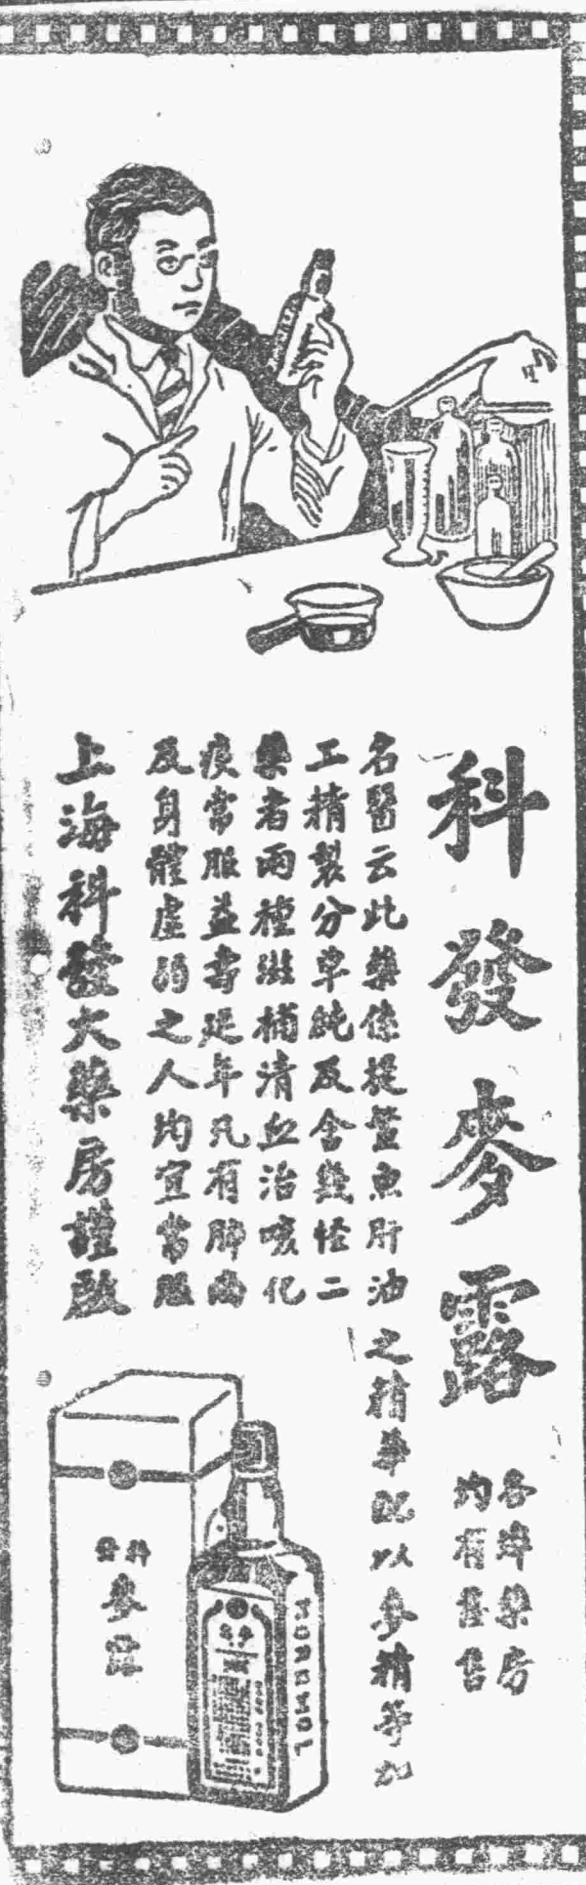 科發麥露
各埠藥房
均有發售
名醫云此藥係提鰵魚肝油之精華配以麥精等加
工精製分單純及含幾怪二
藥者兩種滋補清血治咳化
痰常服益壽延年凡有肺病
及身體虛弱之人均宜常服
上海科發大藥房謹啟
科發
麥露
MORUMOL